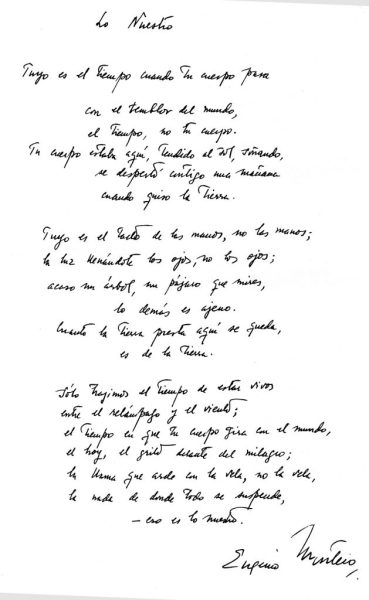 Lo Nuestro
Tuyo es el tiempo cuando tu cuerpo pasa
con el temblor del mundo,
el tiempo, no tu cuerpo.
Tu cuerpo estaba aquí, tendido al sol, soñando,
se despertó contigo una mañana
cuando quiso la tierra.
Tuyo es el tacto de las manos, no las manos;
la luz llenándote los ojos, no los ojos;
acaso un árbol, un pájaro que mires,
lo demás es ajeno.
Cuanto la tierra presta aquí se queda,
es de la tierra.
Sólo trajimos el tiempo de estar vivos
entre el relámpago y el viento;
el tiempo en que tu cuerpo gira con el mundo,
el hoy, el grito delante del milagro;
la llama que arde con la vela, no la vela,
la nada de donde todo se suspende,
—eso es lo nuestro.
Eugenio Montejo